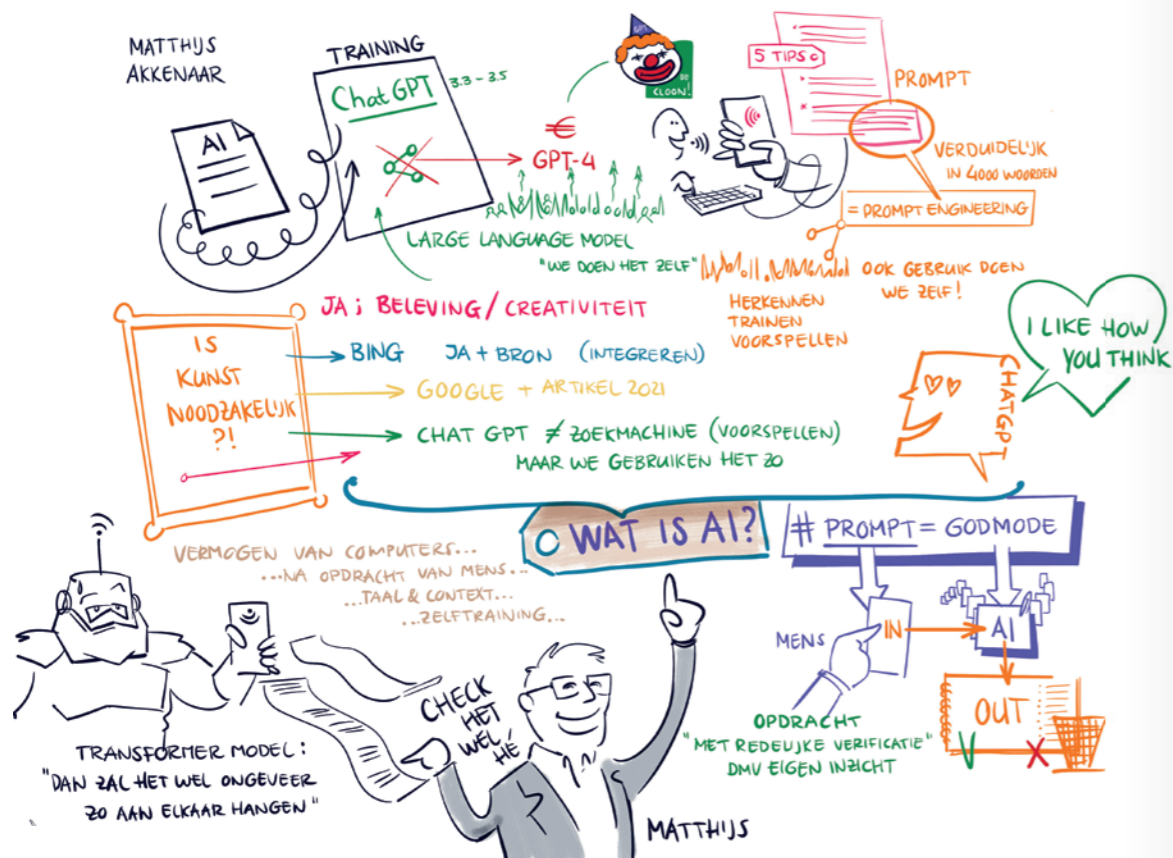 MATTHIJS
AKKENAAR
AI
TRAINING
ChatGPT
3.3 - 3.5
€
GPT-4
DE
CLOON!
LARGE LANGUAGE MODEL
"WE DOEN HET ZELF"
5 TIPS
PROMPT
VERDUIDELIJK
IN 4000 WOORDEN
= PROMPT ENGINEERING
OOK GEBRUIK DOEN
WE ZELF!
HERKENNEN
TRAINEN
VOORSPELLEN
IS
KUNST
NOODZAKELIJK
?!
JA ; BELEVING / CREATIVITEIT
BING JA + BRON (INTEGREREN)
GOOGLE + ARTIKEL 2021
CHAT GPT ≠ ZOEKMACHINE (VOORSPELLEN)
MAAR WE GEBRUIKEN HET ZO
CHATGPT
I LIKE HOW
YOU THINK
WAT IS AI?
VERMOGEN VAN COMPUTERS...
...NA OPDRACHT VAN MENS...
...TAAL & CONTEXT...
...ZELFTRAINING...
# PROMPT = GODMODE
MENS
IN
AI
OUT
V
X
OPDRACHT
"MET REDELIJKE VERIFICATIE"
DMV EIGEN INZICHT
CHECK
HET
WEL
HÉ
TRANSFORMER MODEL:
"DAN ZAL HET WEL ONGEVEER
ZO AAN ELKAAR HANGEN"
MATTHIJS